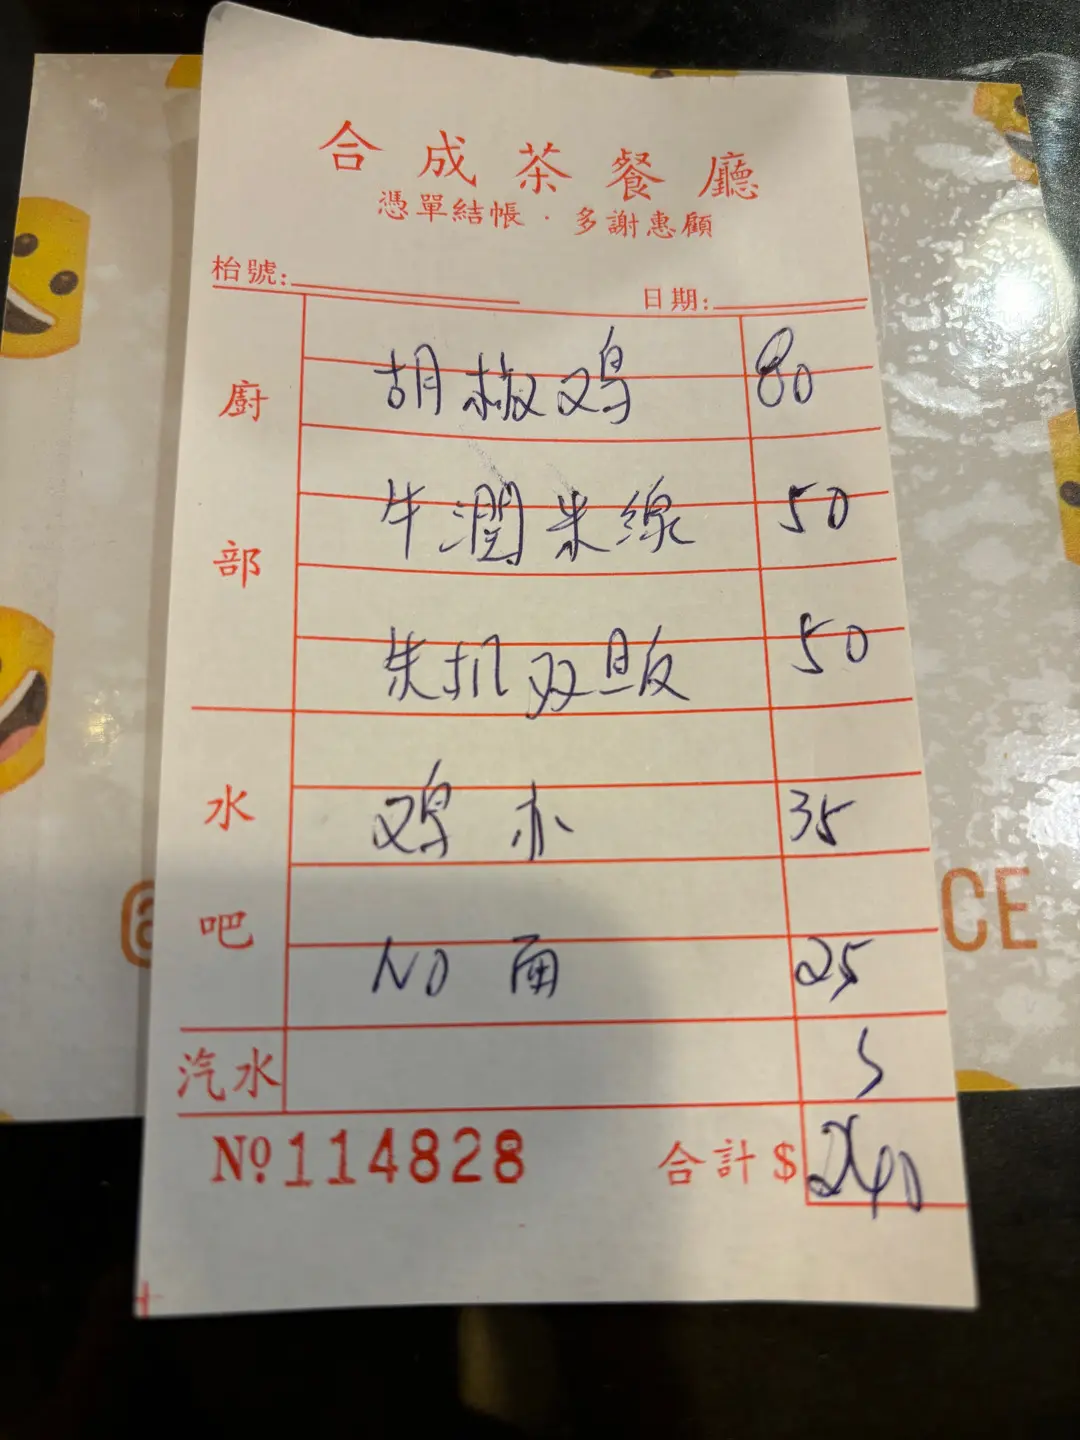 合成茶餐廳
憑單結帳·多謝惠顧
枱號:
日期:
廚部
胡椒鸡 80
牛潤米線 50
双 50
水吧
鸡 35
NO 面 25
汽水 5
№114828 合計$ 240
CE